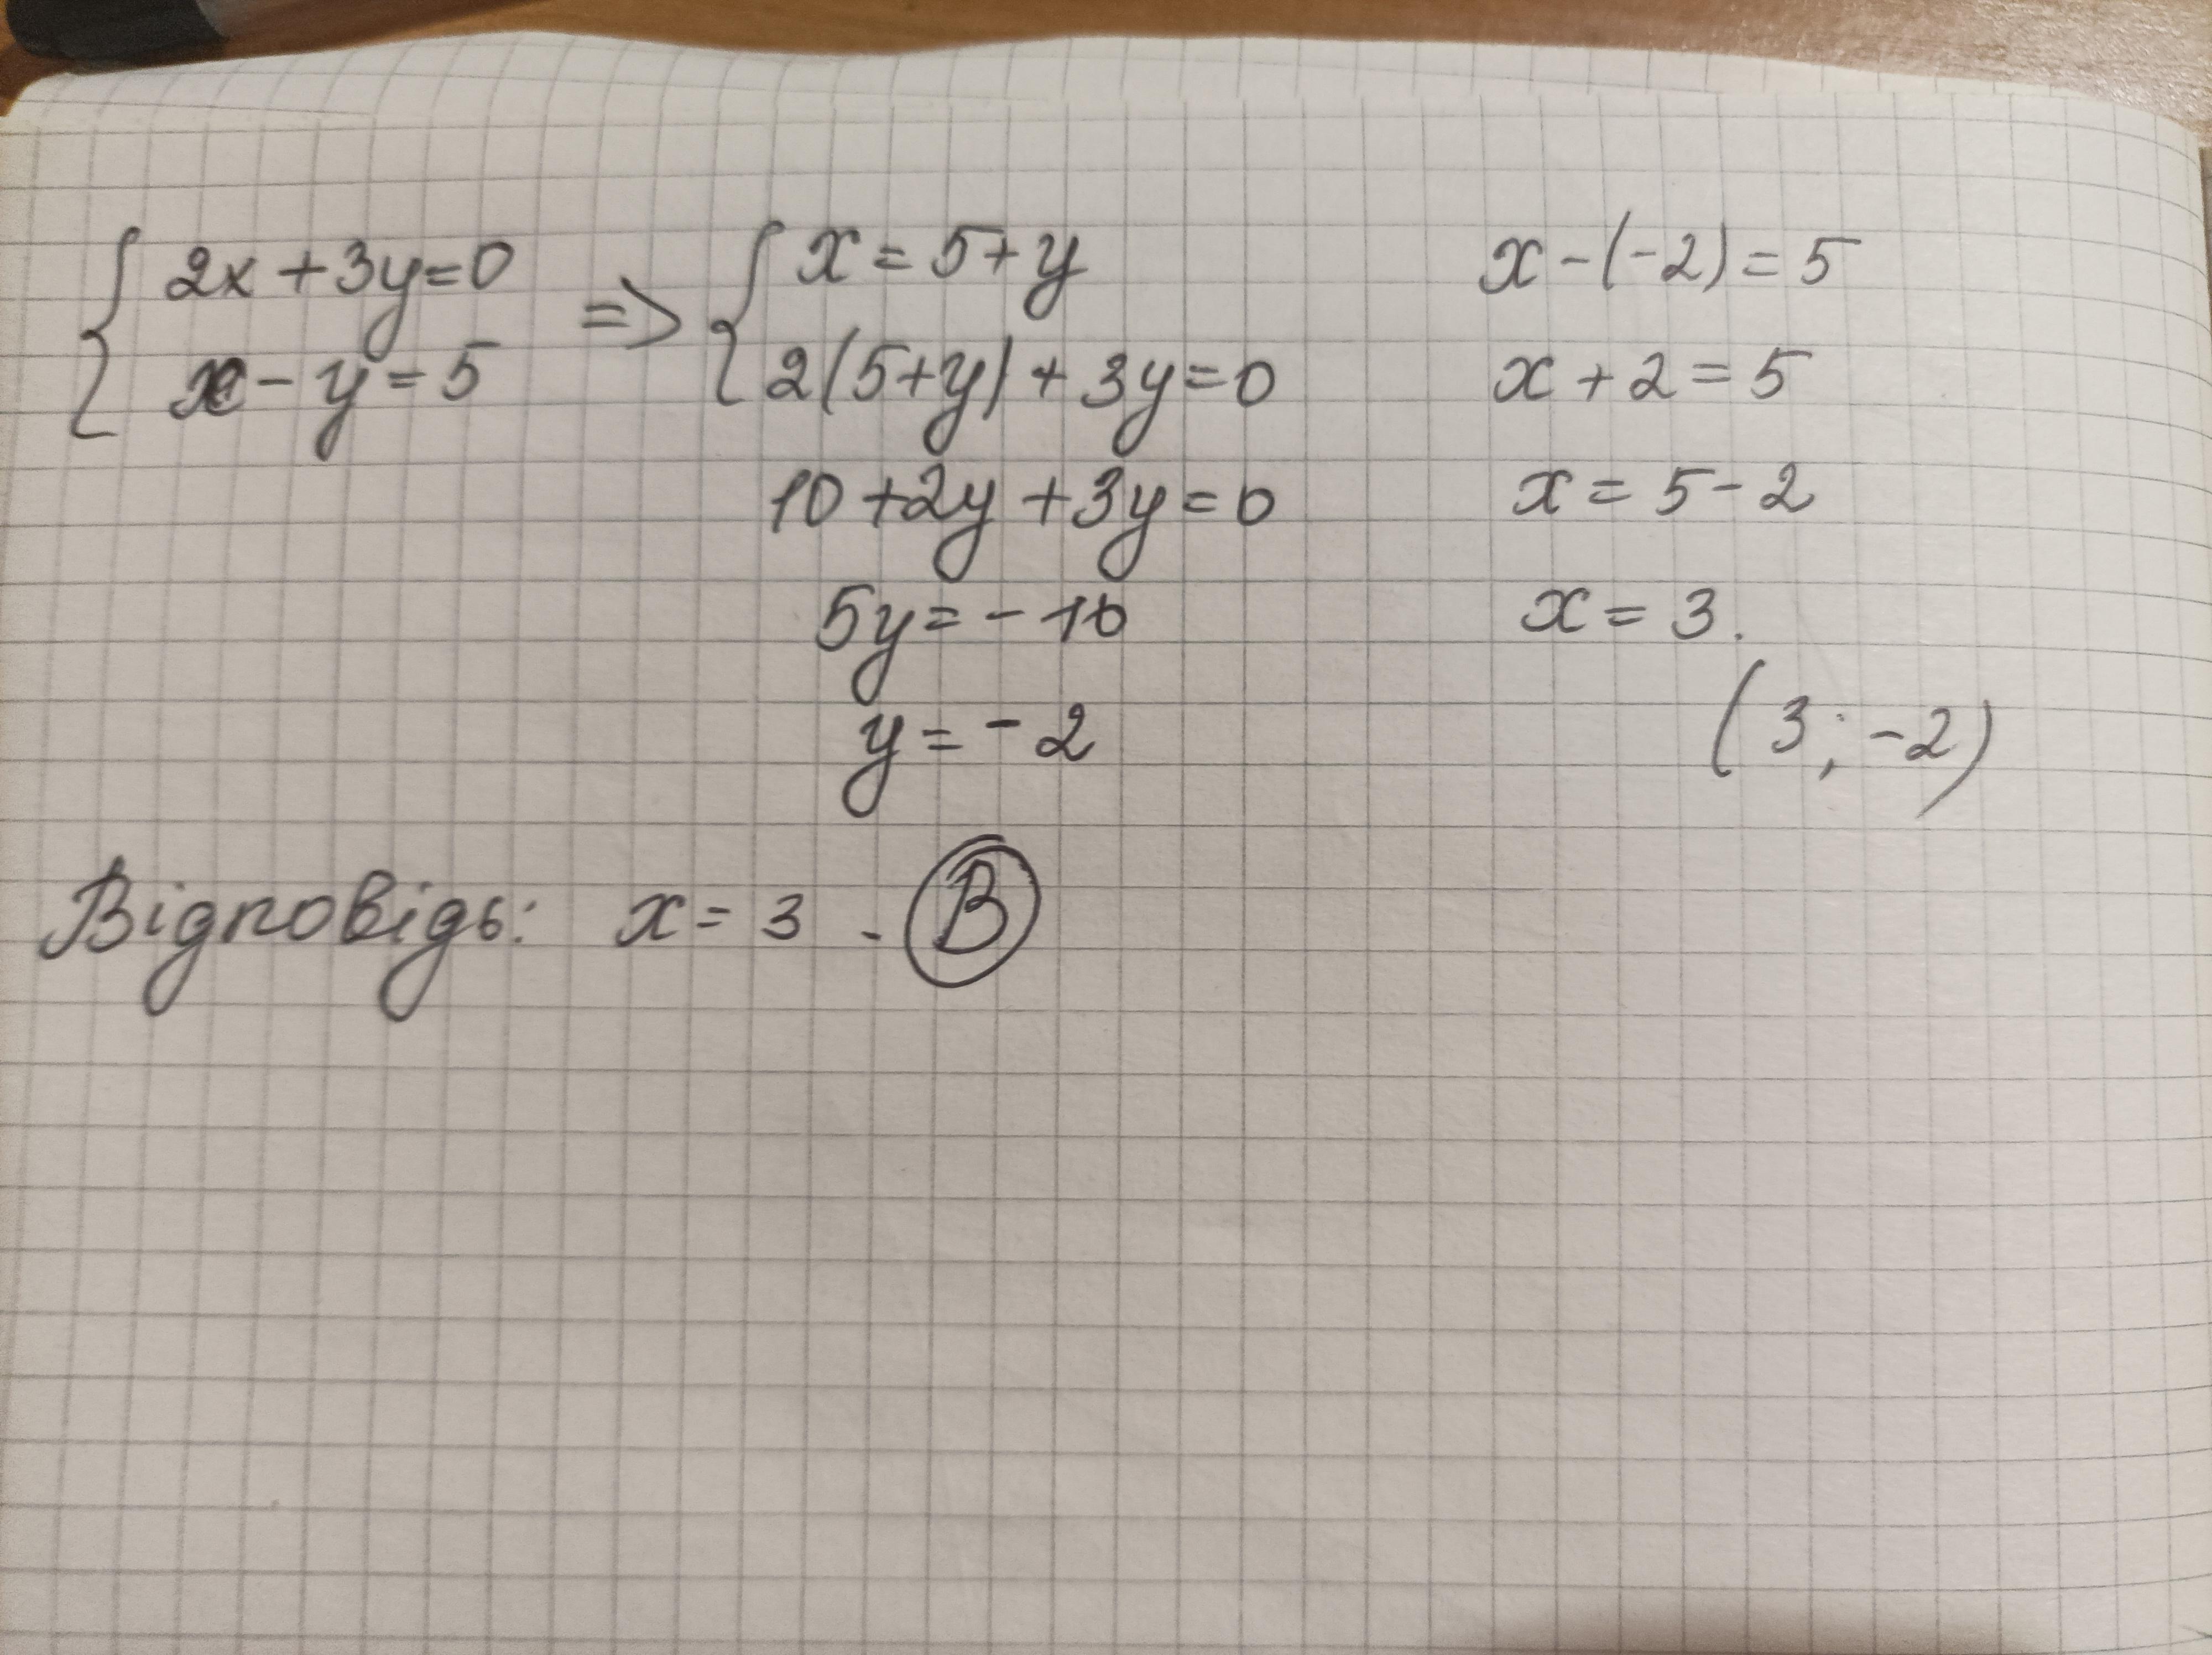 2x + 3y = 0
x - y = 5
=>
x = 5 + y
2(5 + y) + 3y = 0
10 + 2y + 3y = 0
5y = - 10
y = - 2
x - (-2) = 5
x + 2 = 5
x = 5 - 2
x = 3.
(3; -2)
Відповідь: x = 3 - В